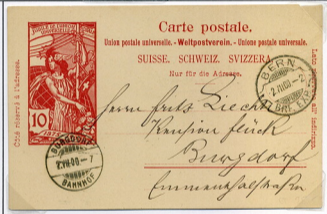 Carte postale.
Union postale universelle. – Weltpostverein. – Unione postale universale.
SUISSE. SCHWEIZ. SVIZZERA.
Nur für die Adresse.
Côté réservé à l'adresse.
10
BERN
BURGDORF
BAHNHOF
Herrn Fritz Liechti
Pension Flück
Burgdorf
Emmenthalstraße